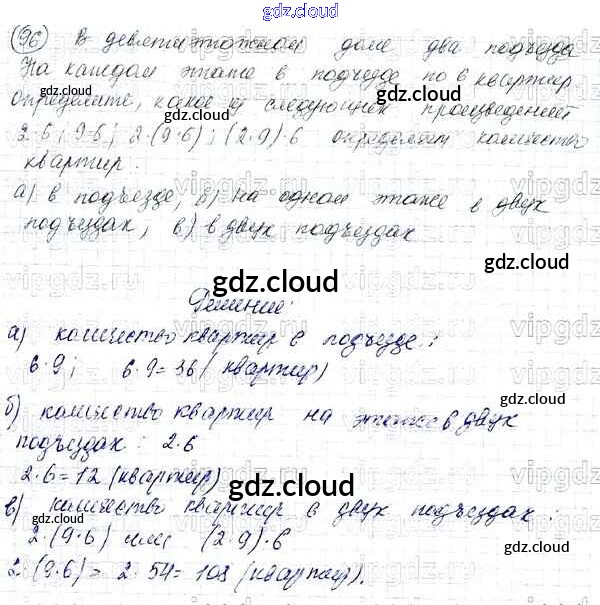 gdz.cloud
96 В девятиэтажном доме два подъезда
На каждом этаже в подъезде по 6 квартир
определите, какое из следующих произведений
2·6; 9·6; 2·(9·6); (2·9)·6 определяет количество
квартир:
а) в подъезде, б) на одном этаже в двух
подъездах, в) в двух подъездах
gdz.cloud
Решение:
а) количество квартир в подъезде:
6·9; 6·9=36 (квартир)
б) количество квартир на этаже в двух
подъездах: 2·6
2·6=12 (квартир)
gdz.cloud
в) количество квартир в двух подъездах:
2·(9·6) или (2·9)·6
2·(9·6)= 2·54= 108 (квартир).
gdz.cloud